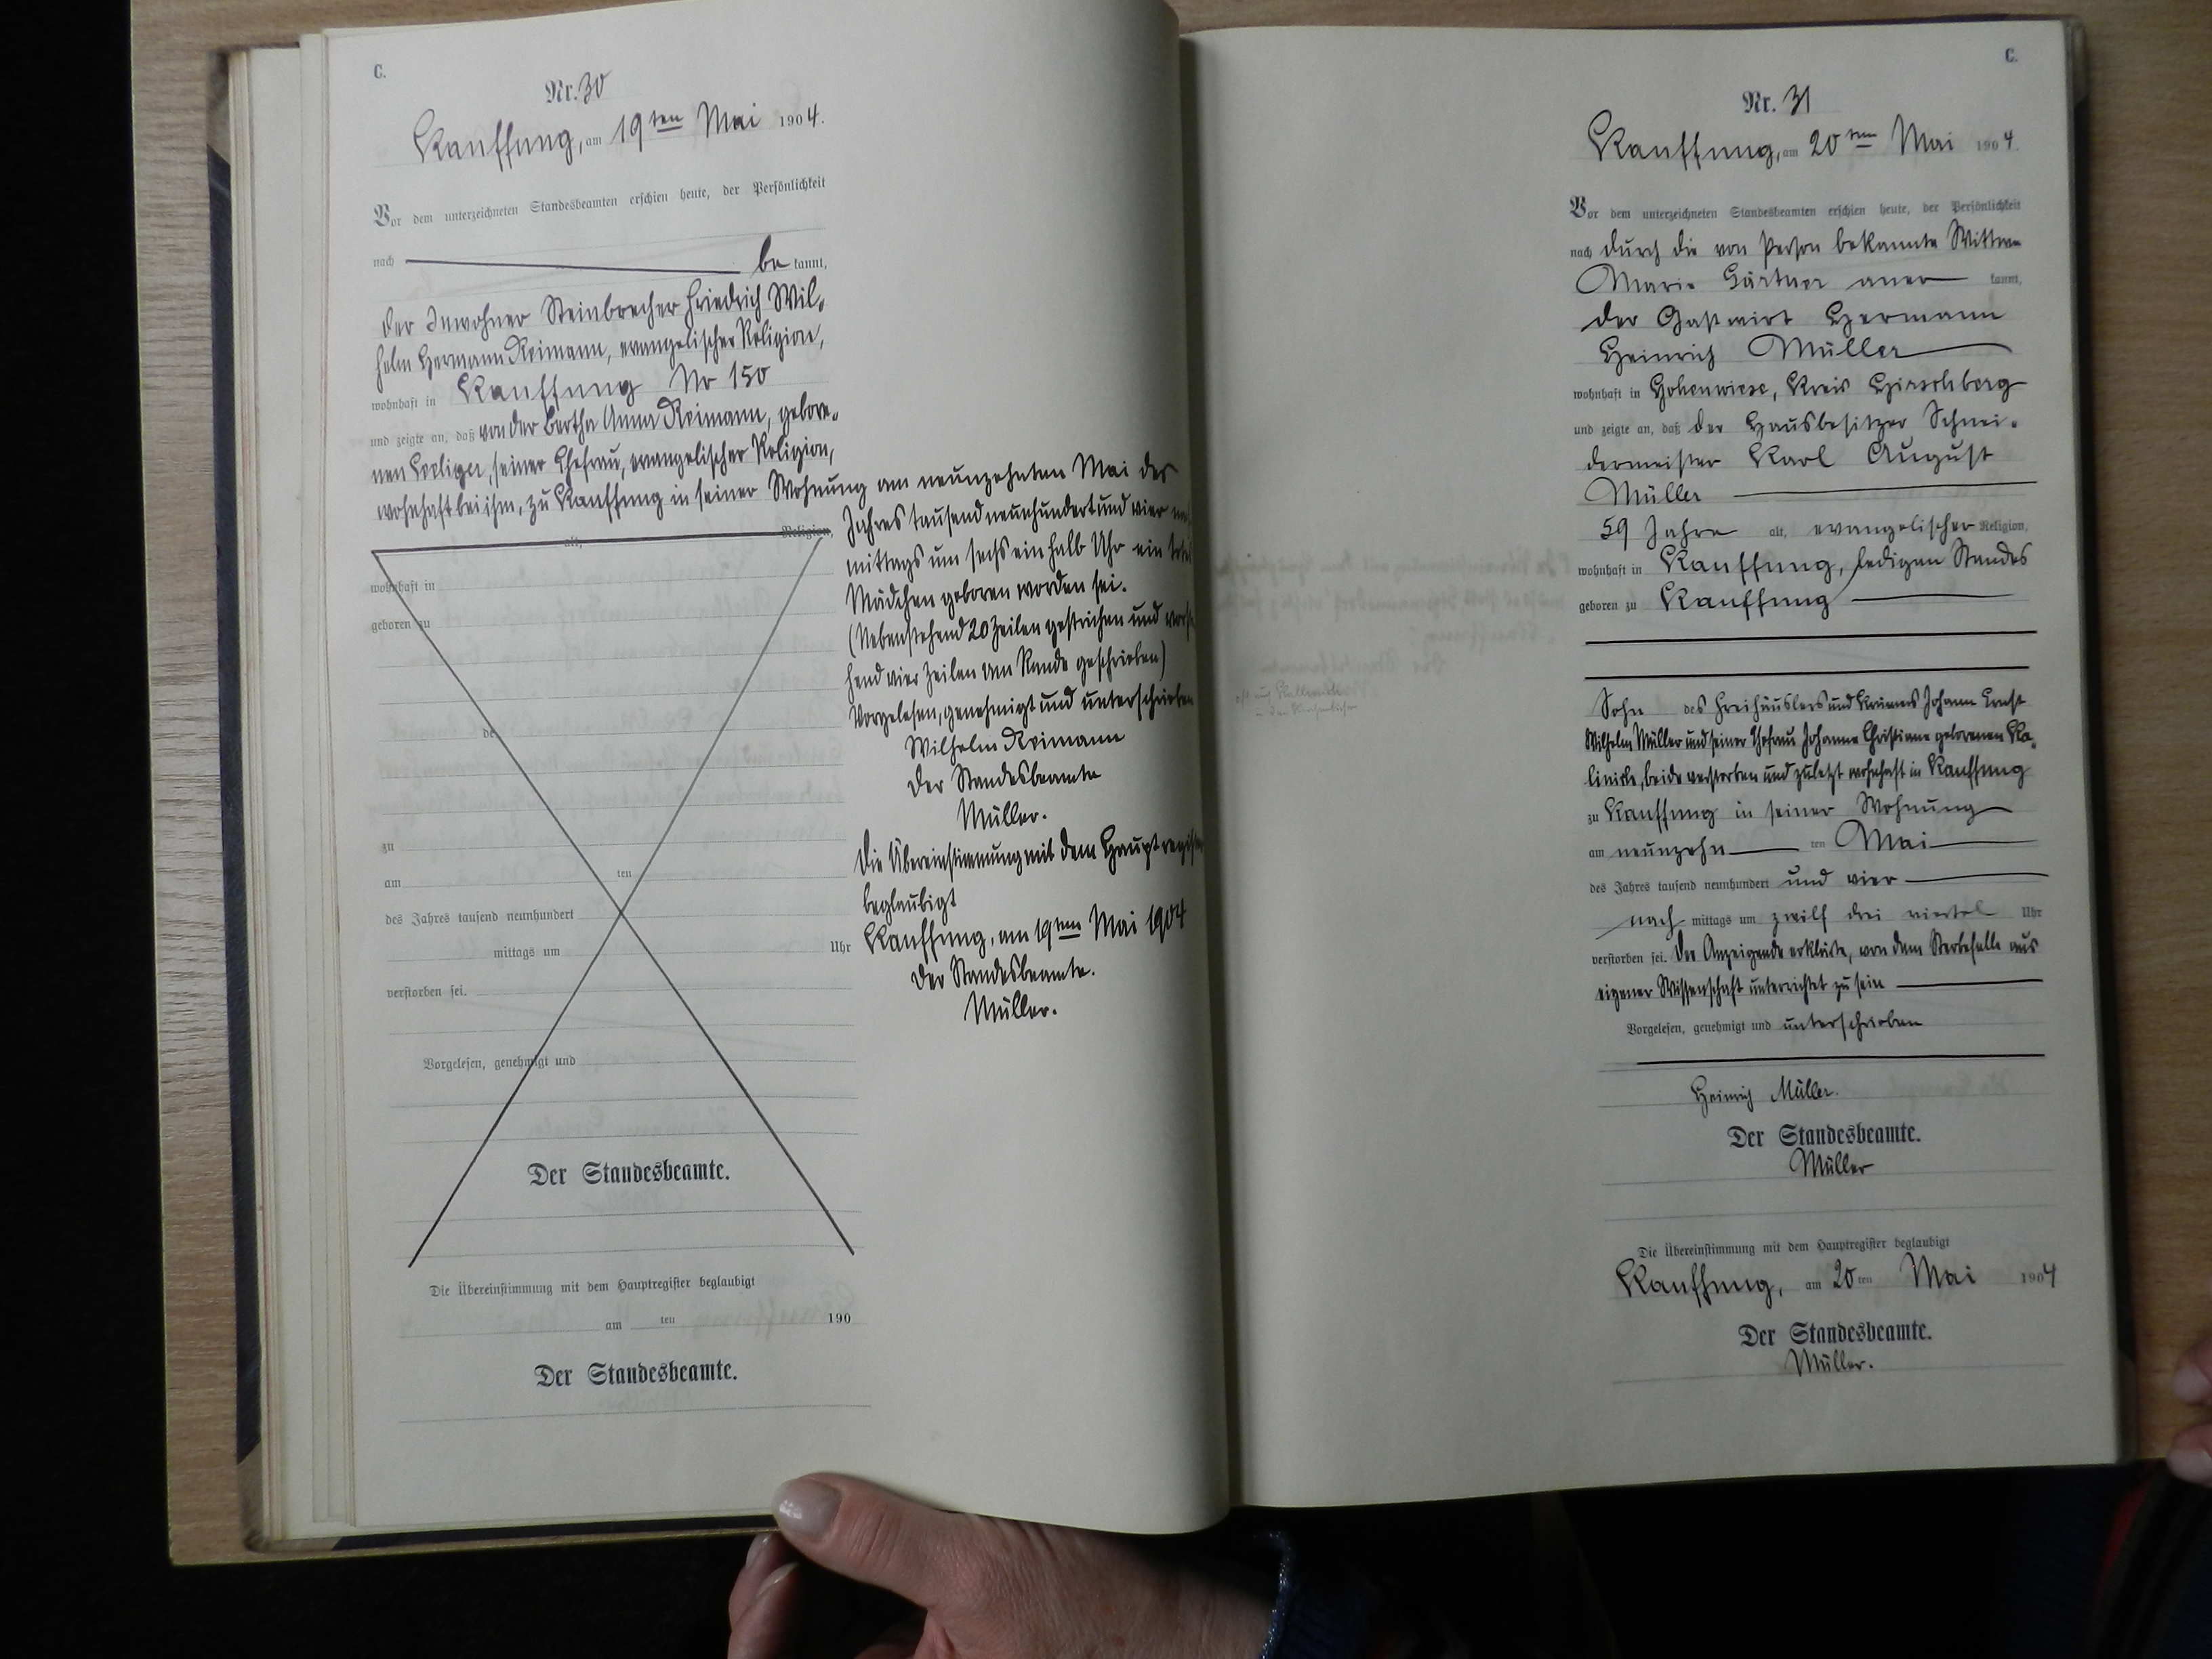 C.
Nr. 30
Kauffung, am 19ten Mai 1904.
Vor dem unterzeichneten Standesbeamten erschien heute, der Persönlichkeit
nach be kannt,
der Inwohner Steinbrecher Friedrich Wil-
helm Hermann Reimann, evangelischer Religion,
wohnhaft in Kauffung No 150
und zeigte an, daß von der Bertha Anna Reimann, gebore-
nen seiner Ehefrau, evangelischer Religion,
wohnhaft bei ihm, zu Kauffung in seiner Wohnung am neunzehnten Mai des
Jahres tausend neunhundert und vier
mittags um sechs ein halb Uhr ein
Mädchen geboren worden sei.
(Nebenstehend 20 Zeilen gestrichen und
hend vier Zeilen am Rande geschrieben)
Vorgelesen, genehmigt und unterschrieben
Wilhelm Reimann
Der Standesbeamte
Müller.
Die Übereinstimmung mit dem Hauptregister
beglaubigt
Kauffung, am 19ten Mai 1904
Der Standesbeamte.
Müller.
alt, Religion,
wohnhaft in
geboren zu
de
zu
am ten
des Jahres tausend neunhundert
mittags um Uhr
verstorben sei.
Vorgelesen, genehmigt und
Der Standesbeamte.
Die Übereinstimmung mit dem Hauptregister beglaubigt
am ten 190
Der Standesbeamte.
C.
Nr. 31
Kauffung, am 20ten Mai 1904.
Vor dem unterzeichneten Standesbeamten erschien heute, der Persönlichkeit
nach durch die von Person bekannte Wittwe
Marie Gärtner aner kannt,
der Gastwirt Hermann
Heinrich Müller
wohnhaft in Hohenwiese, Kreis Hirschberg
und zeigte an, daß der Hausbesitzer Schnei-
dermeister Karl August
Müller
59 Jahre alt, evangelischer Religion,
wohnhaft in Kauffung, ledigen Standes
geboren zu Kauffung
Sohn des Freihäuslers und Krämers Johann Ernst
Wilhelm Müller und seiner Ehefrau Johanne Christiane geborenen
beide verstorben und zuletzt wohnhaft in Kauffung
zu Kauffung in seiner Wohnung
am neunzehn ten Mai
des Jahres tausend neunhundert und vier
nach mittags um zwölf drei viertel Uhr
verstorben sei. Der Anzeigende erklärte, von dem Sterbefalle aus
eigener Wissenschaft unterrichtet zu sein
Vorgelesen, genehmigt und unterschrieben
Heinrich Müller.
Der Standesbeamte.
Müller
Die Übereinstimmung mit dem Hauptregister beglaubigt
Kauffung, am 20 ten Mai 1904
Der Standesbeamte.
Müller.